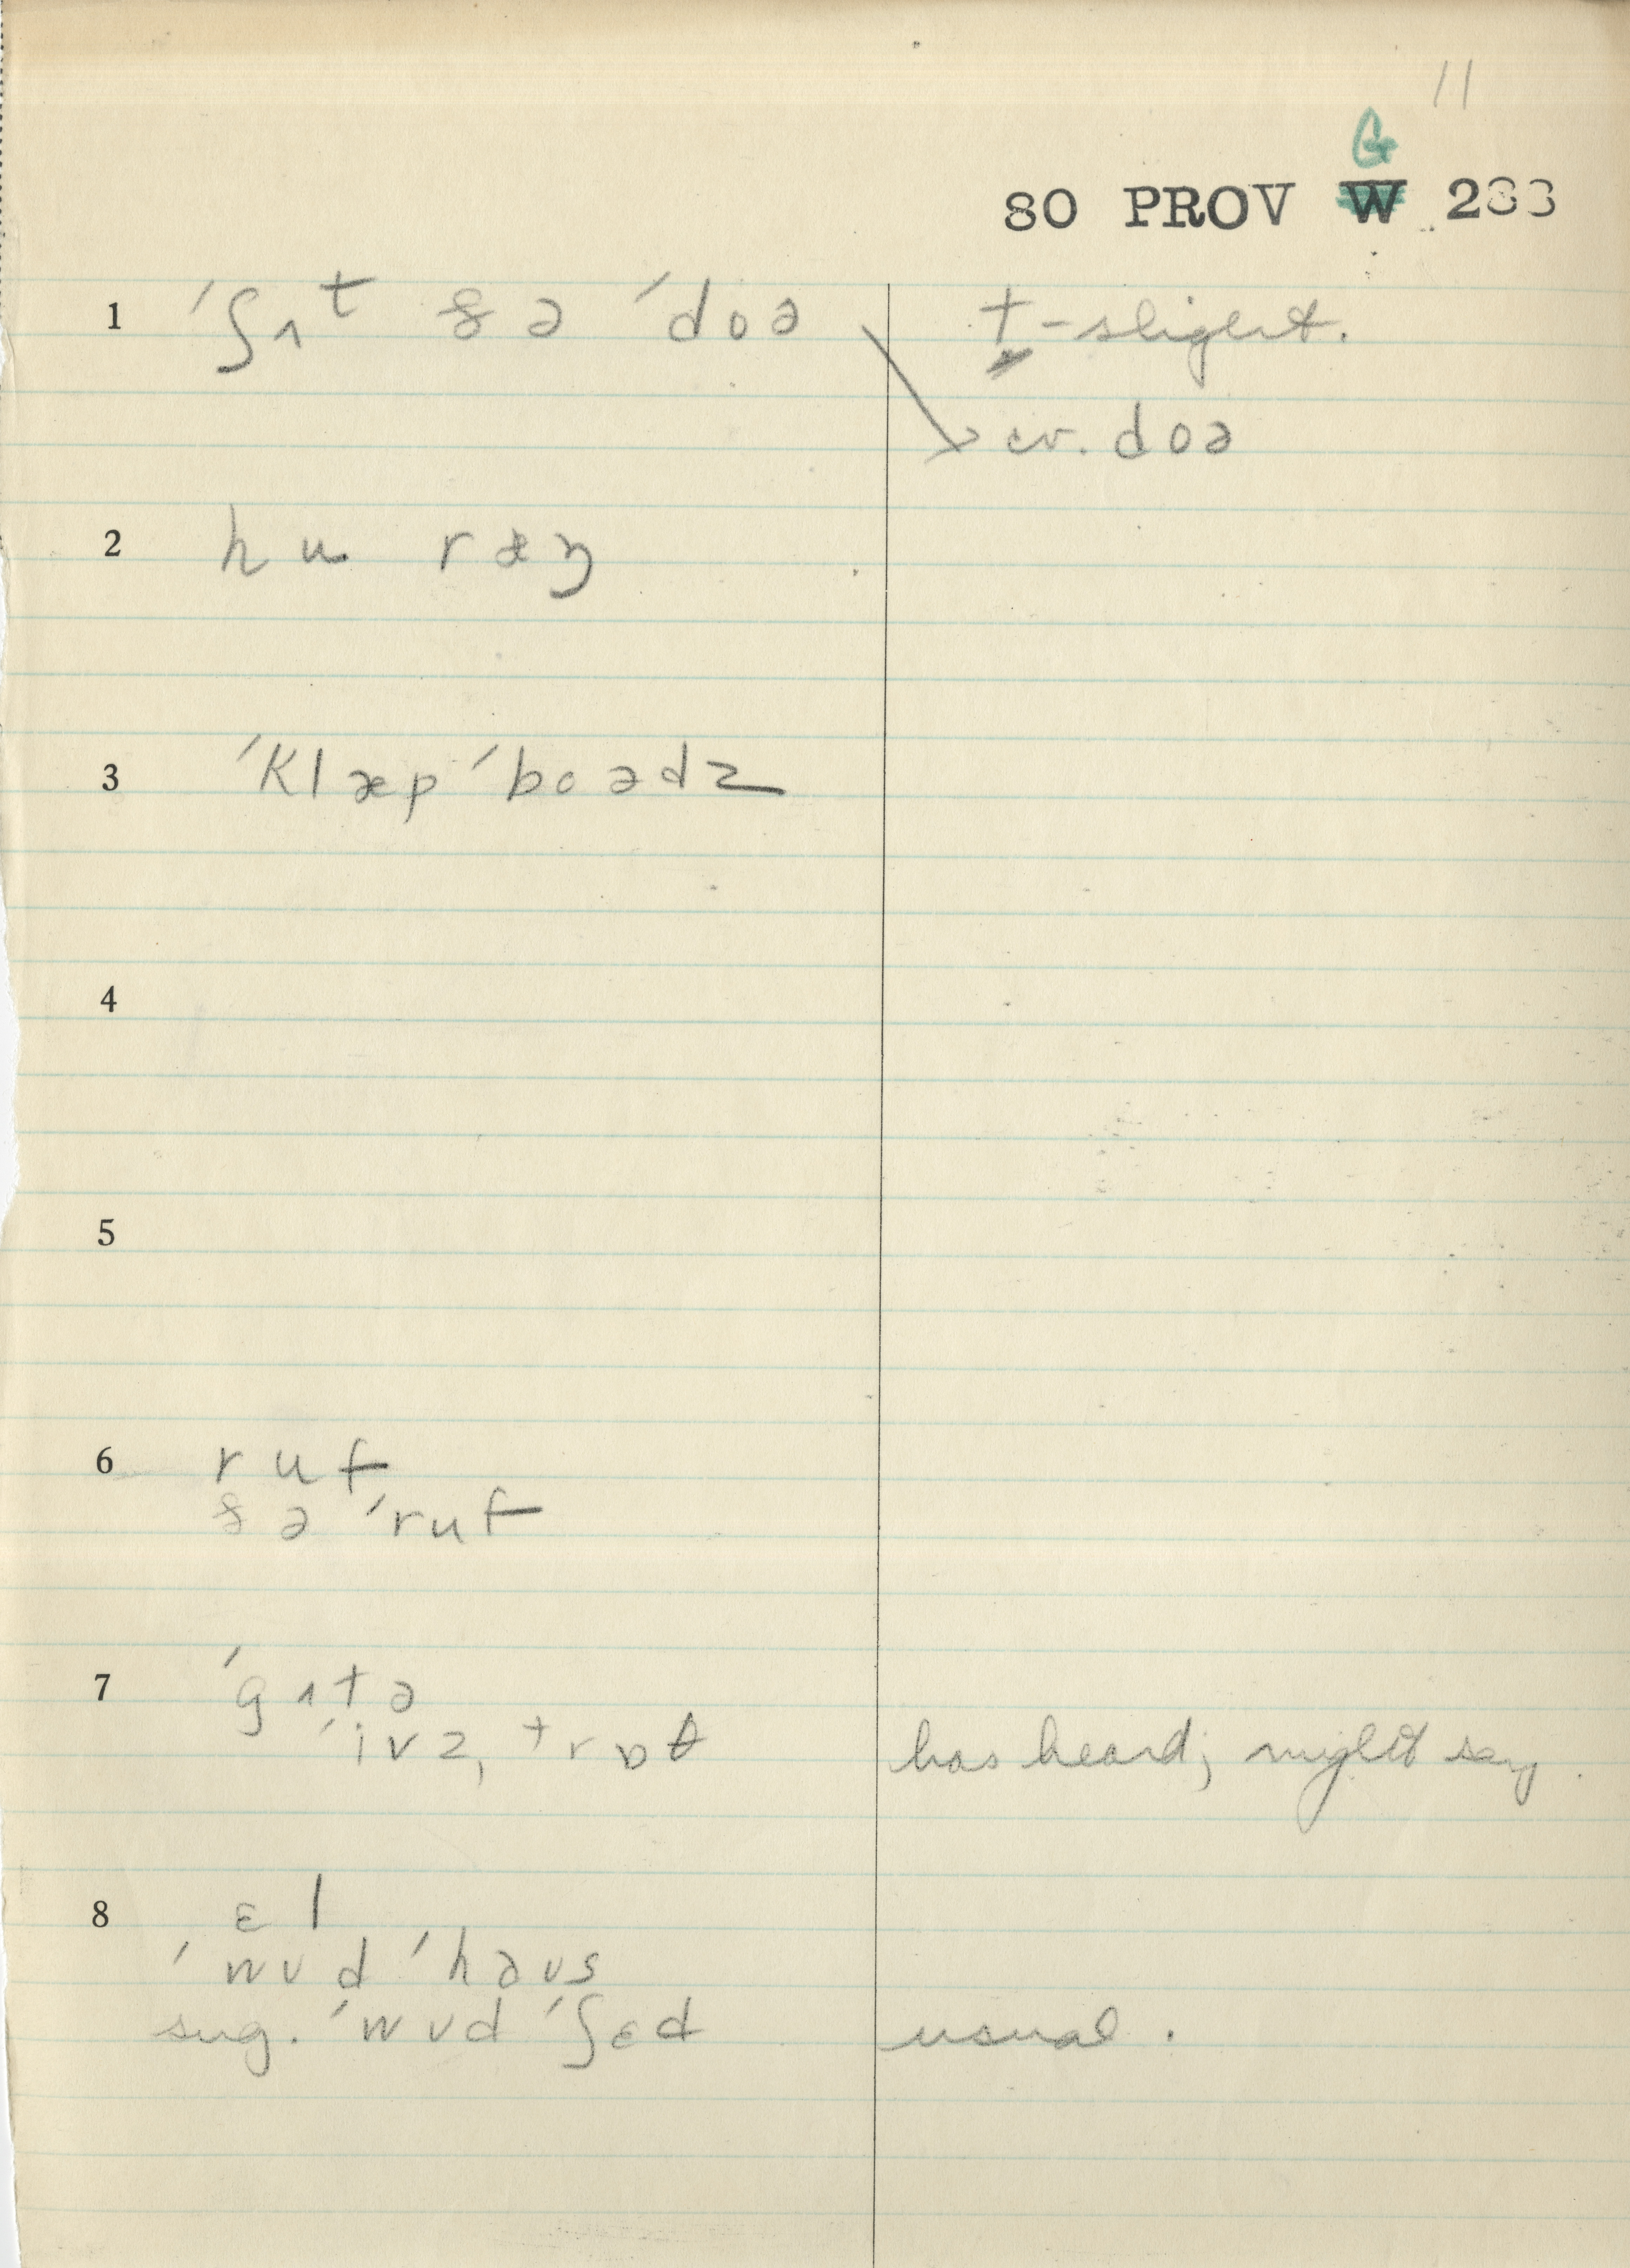 11
G
80 PROV W 233
1 ˈʃʌᵗ ðə ˈdoə t-slight.
cv. doə
2 hu ræŋ
3 ˈklæp ˈboədz
4
5
6 ruf
ðə ˈruf
7 ˈgʌtə
ˈivz, trɒt has heard; might say.
8 ɛl
ˈwʊd ˈhəʊs
sug. ˈwʊd ˈʃɛd usual.